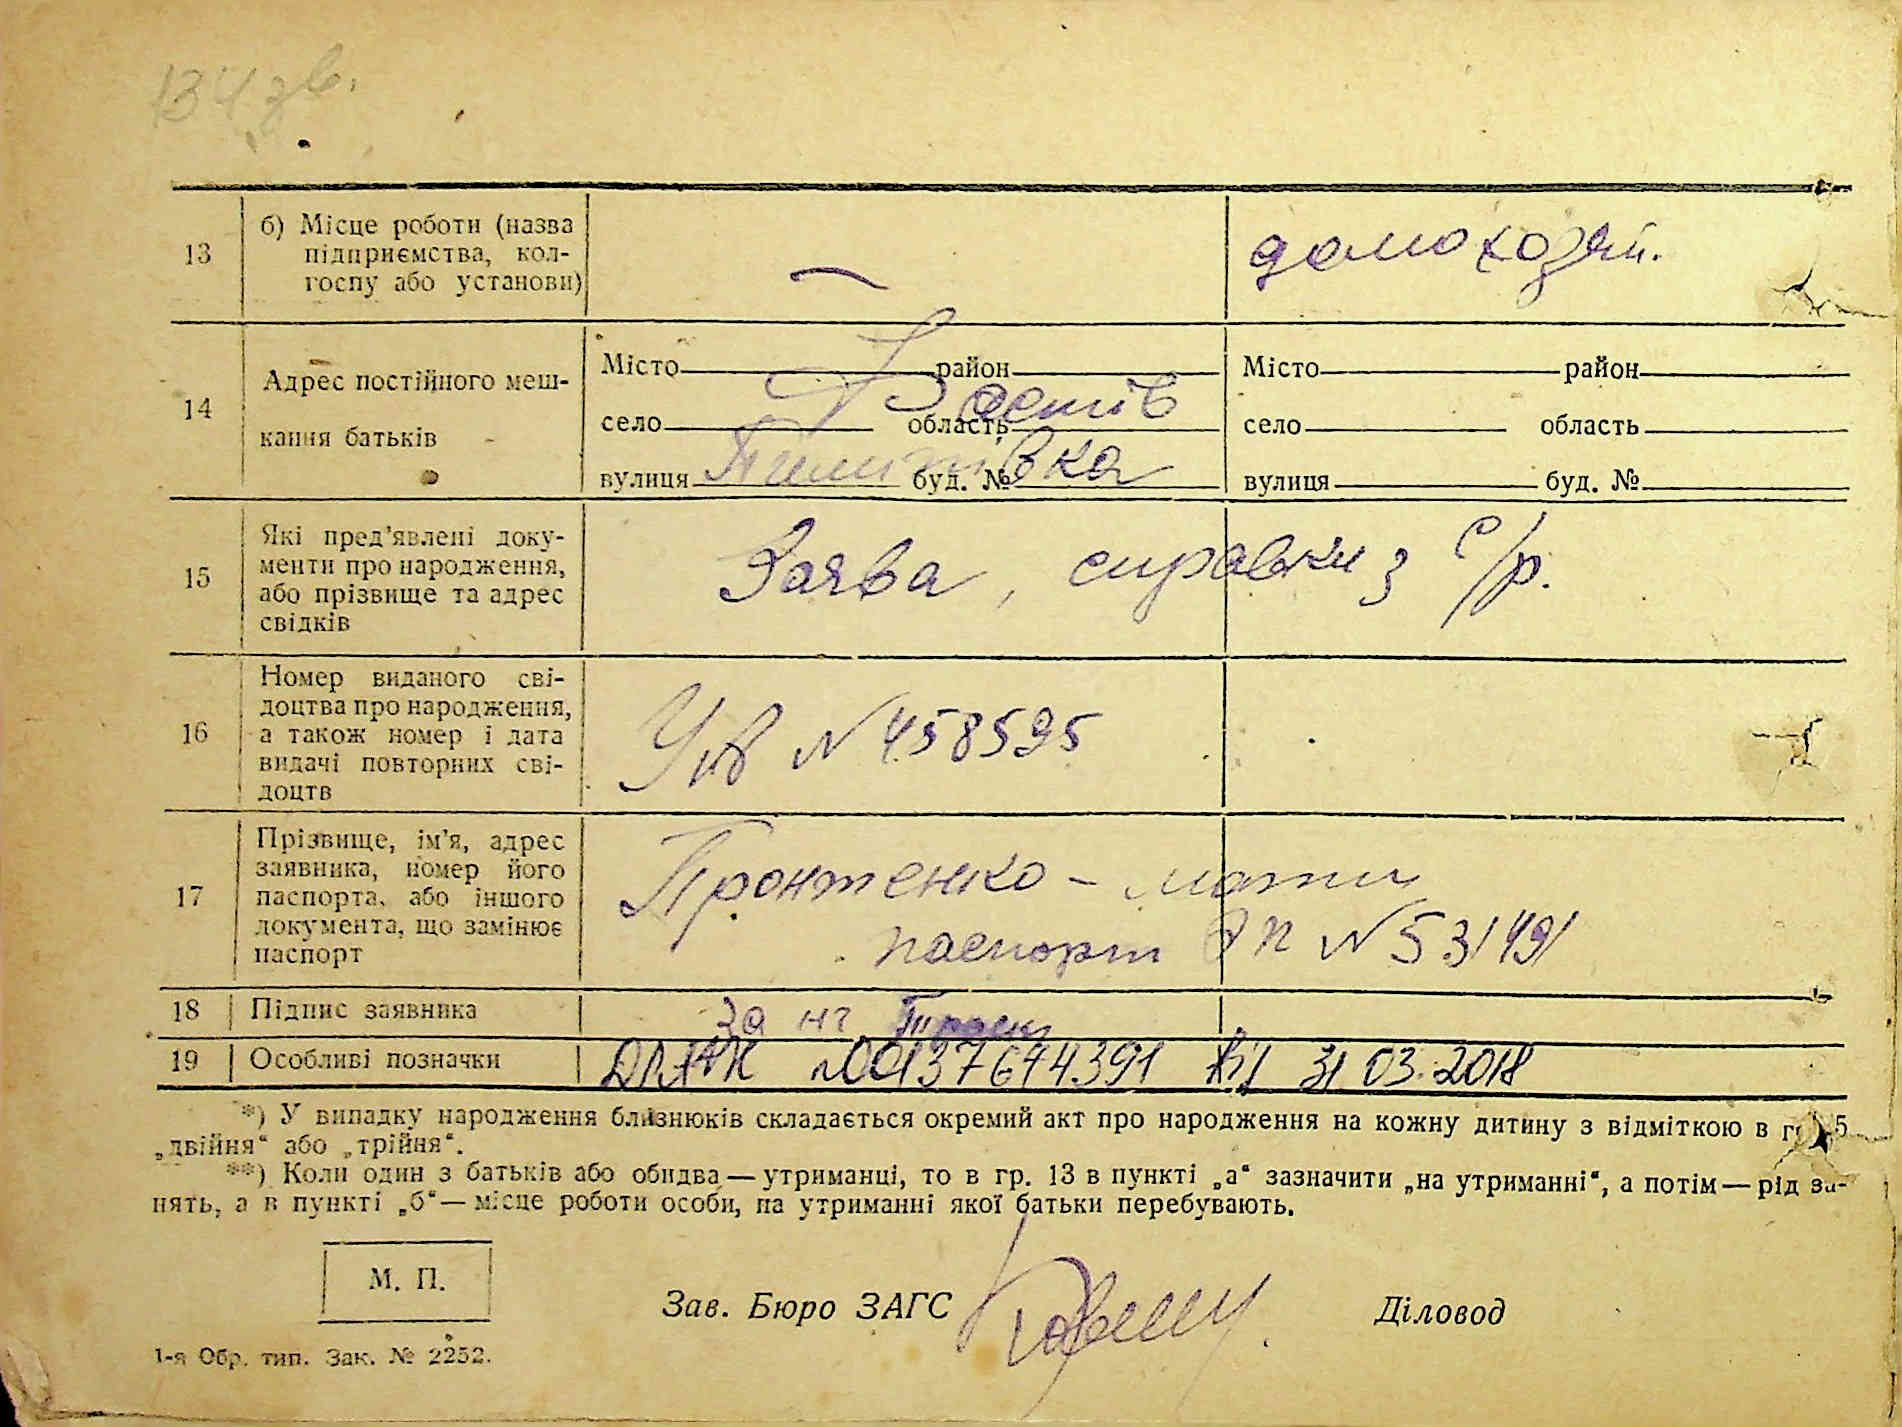 134 зв.
13
б) Місце роботи (назва підприємства, колгоспу або установи)
—
домохозяй.
14
Адрес постійного мешкання батьків
Місто район
Місто район
Фастів
село область
село область
вулиця буд. №
вулиця буд. №
15
Які пред'явлені документи про народження, або прізвище та адрес свідків
Заява, справки з с/р.
16
Номер виданого свідоцтва про народження, а також номер і дата видачі повторних свідоцтв
N 458595
17
Прізвище, ім'я, адрес заявника, номер його паспорта, або іншого документа, що замінює паспорт
Пронтенко – мати
паспорт N 531491
18
Підпис заявника
за нг
19
Особливі позначки
ДРАЦС №00137644391 від 31 03. 2018
*) У випадку народження близнюків складається окремий акт про народження на кожну дитину з відміткою в гр. 5
„двійня“ або „трійня“.
**) Коли один з батьків або обидва — утриманці, то в гр. 13 в пункті „а“ зазначити „на утриманні“, а потім — рід за-
нять, а в пункті „б“ — місце роботи особи, на утриманні якої батьки перебувають.
М. П.
Зав. Бюро ЗАГС
Діловод
1-я Обр. тип. Зак. № 2252.